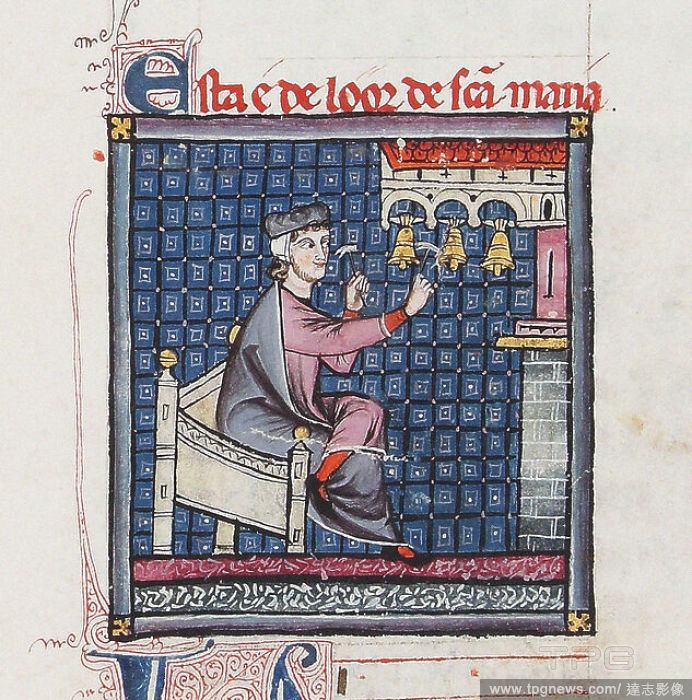 Esta é de loor de scã maria.
TPG
www.tpgnews.com/ 達志影像